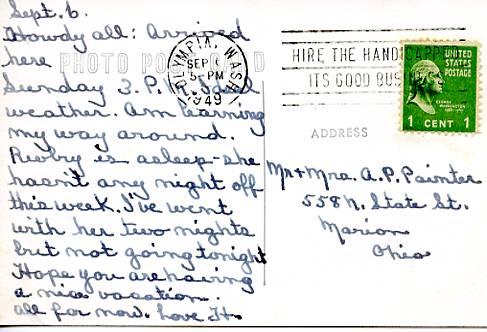 Sept. 6.
Howdy all: Arrived
here
PHOTO POST CARD
Sunday 3. P.M. Ideal
weather. Am learning
my way around.
Ruby is asleep - she
hasn't any night off
this week. I've went
with her two nights
but not going tonight
Hope you are having
a nice vacation.
all for now. Love H.
OLYMPIA, WASH.
SEP
5-PM
1949
HIRE THE HANDICAPPED
ITS GOOD BUS
UNITED
STATES
POSTAGE
GEORGE
WASHINGTON
1 CENT 1
ADDRESS
Mr + Mrs. A. P. Painter
558 N. State St.
Marion
Ohio